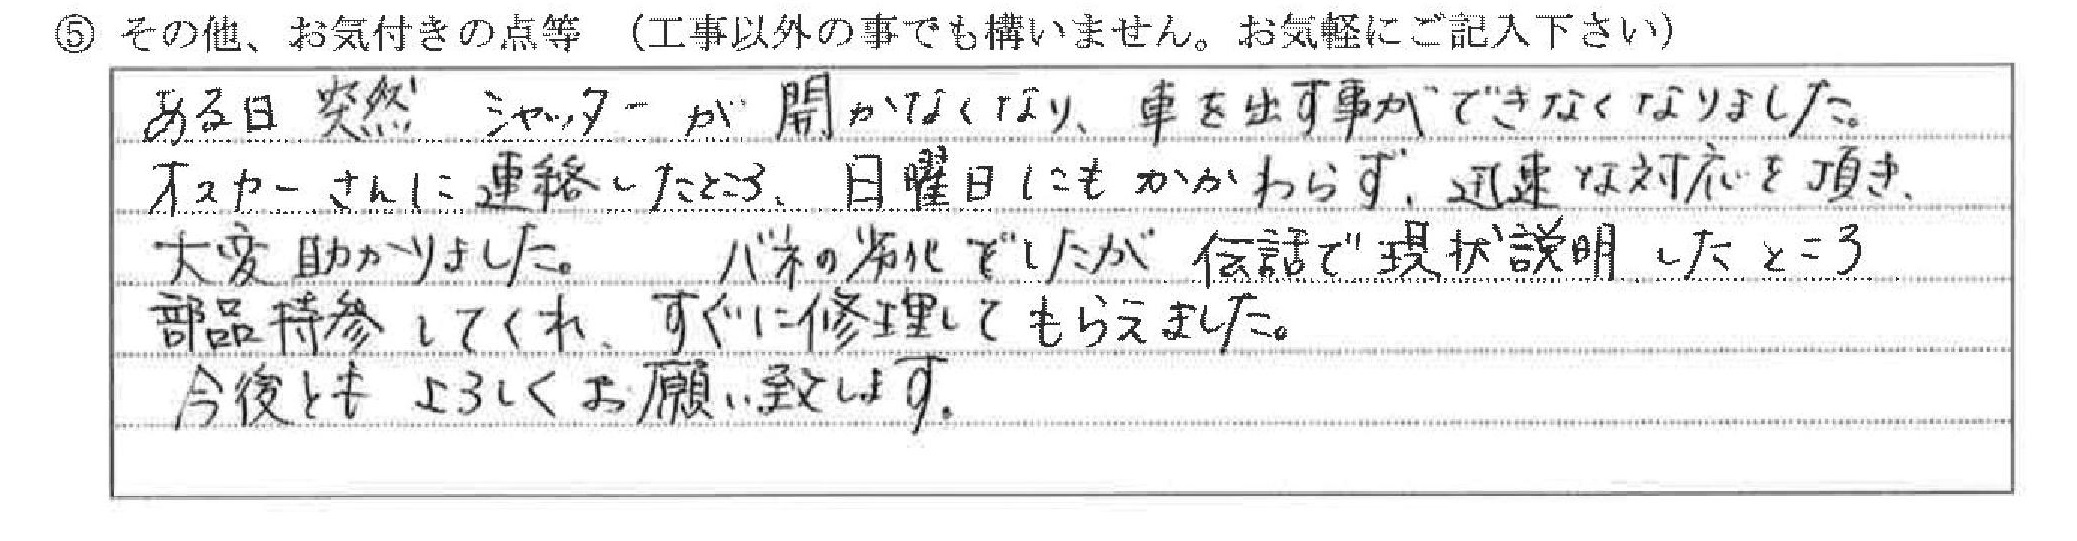 ⑤ その他、お気付きの点等 （工事以外の事でも構いません。お気軽にご記入下さい）
ある日 突然 シャッターが 開かなくなり、車を出す事ができなくなりました。
オスカーさんに連絡したところ、日曜日にもかかわらず、迅速な対応を頂き、
大変助かりました。 バネの劣化でしたが 伝話で現状説明したところ
部品持参してくれ、すぐに修理してもらえました。
今後とも よろしくお願い致します。